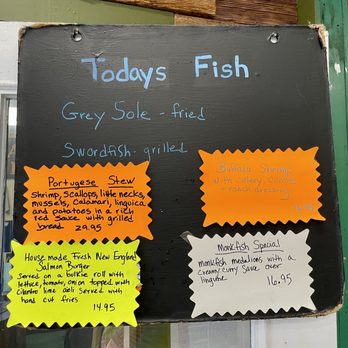 Todays Fish
Grey Sole - fried
Swordfish - grilled
Portugese Stew
Shrimp, scallops, little necks,
mussels, calamari, linguica
and potatoes in a rich
red sauce with grilled
bread 29.95
Buffalo Shrimp
with celery, carrots
- ranch dressing
House made Fresh New England
Salmon Burger
Served on a bulkie roll with
lettuce, tomato, onion topped with
cilantro lime aioli served with
hand cut fries
14.95
Monkfish Special
monkfish medalions with a
creamy curry sauce over
linguine
16.95